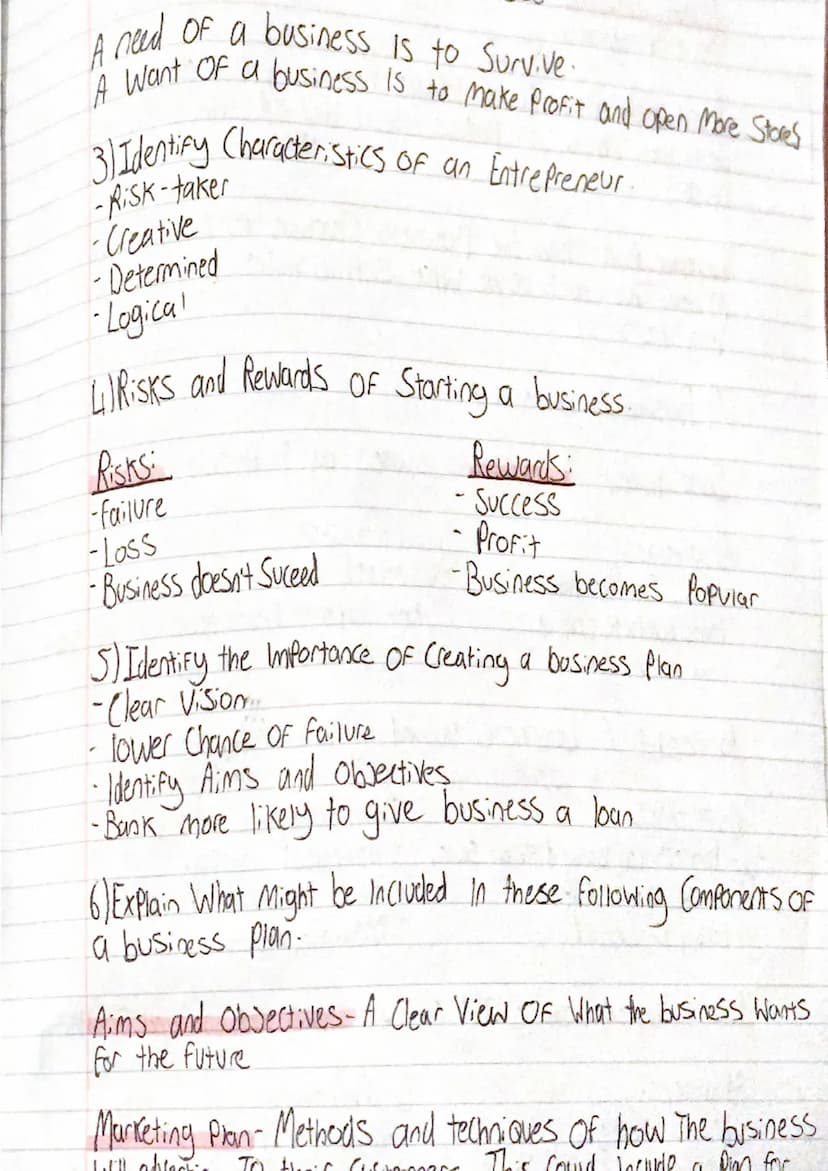 A need of a business is to Survive.
A Want of a business is to Make Profit and open More Stores
3) Identify Characteristics of an Entrepreneur.
- Risk-taker
- Creative
- Determined
- Logical
4) Risks and Rewards of Starting a business.
Risks:
- Failure
- Loss
- Business doesn't Suceed
Rewards:
- Success
- Profit
- Business becomes Popular
5) Identify the Importance of Creating a business Plan
- Clear Vision
- lower Chance of Failure
- Identify Aims and Objectives
- Bank more likely to give business a loan
6) Explain What Might be Included In these Following Components of
a business Plan.
Aims and Objectives - A Clear View of What the business Wants
for the future
Marketing Plan - Methods and techniques of how The business
Will To their Customers. This Could Include a Plan for